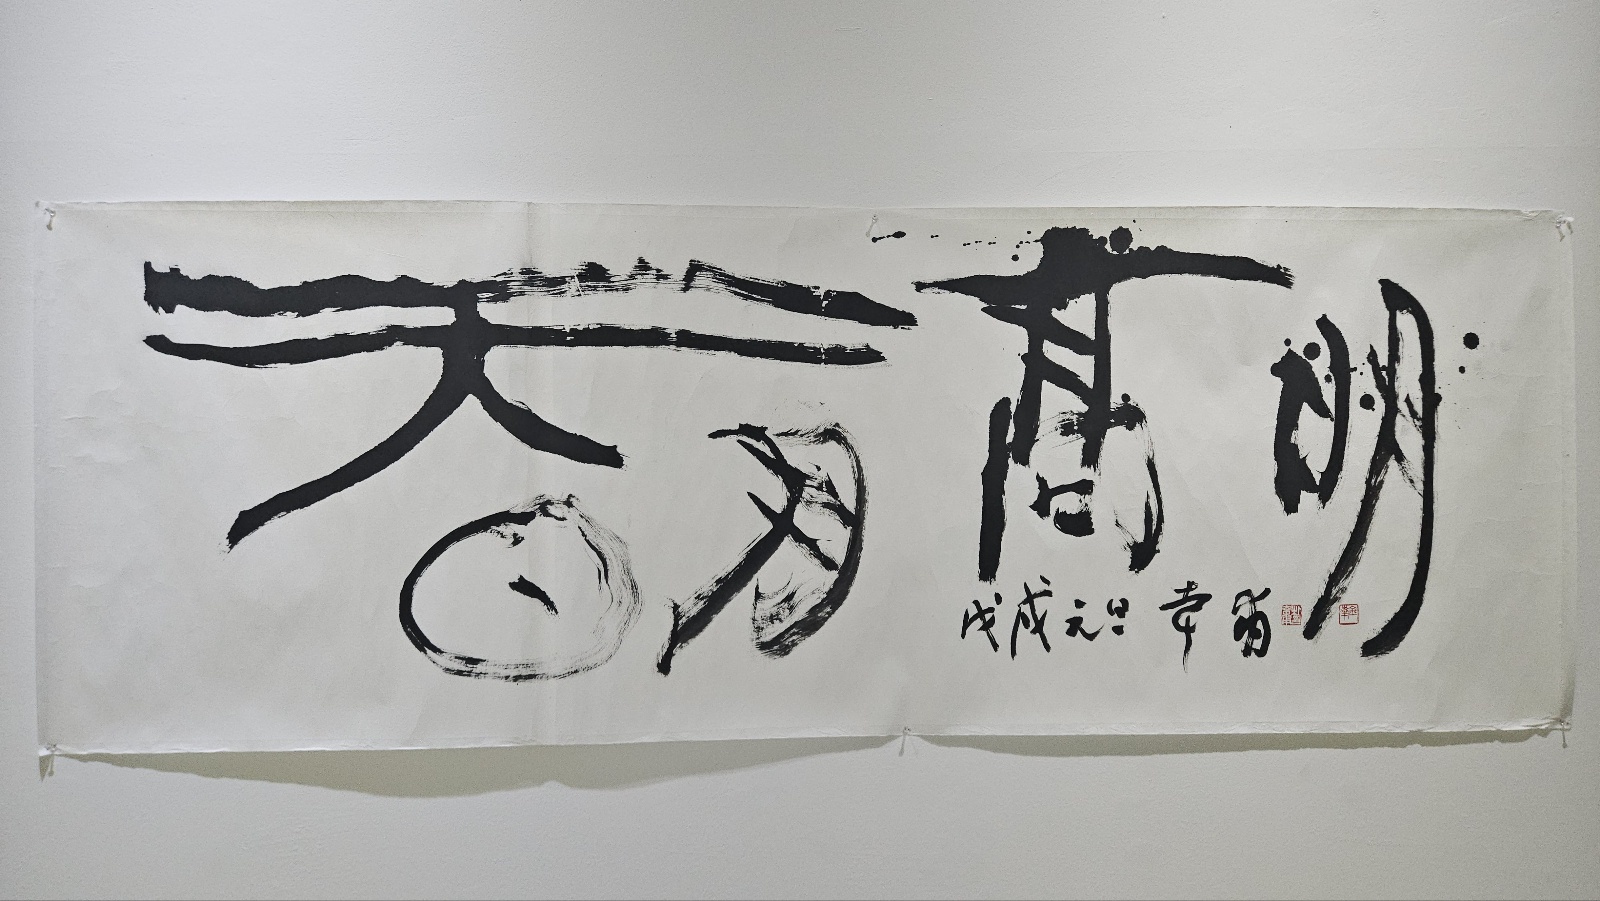 天日月高明
戊戌元旦